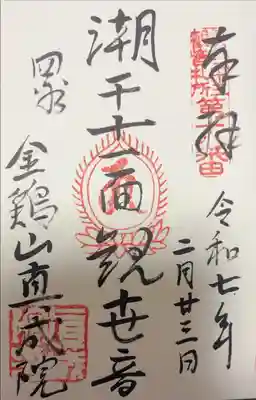 奉拝
令和七年
二月廿三日
潮干十一面観世音
四谷
金鶏山真成院